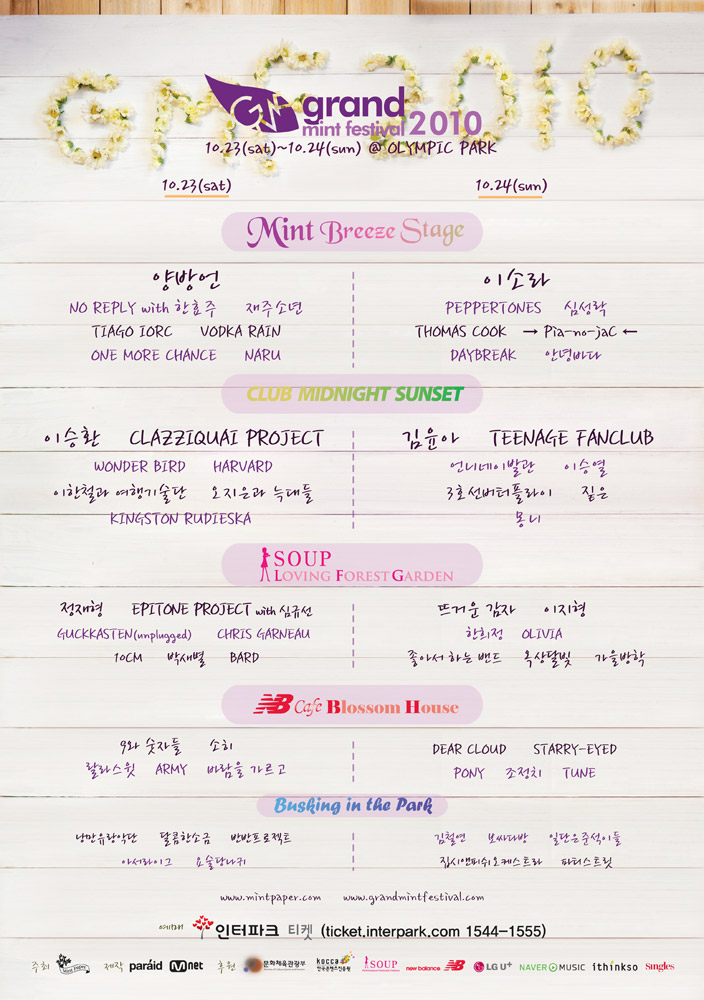 GMF2010
GMF grand
mint festival 2010
10.23(sat)~10.24(sun) @ OLYMPIC PARK
10.23(sat) 10.24(sun)
Mint Breeze Stage
양방언 이소라
NO REPLY with 한효주 재주소년 PEPPERTONES 심성락
TIAGO IORC VODKA RAIN THOMAS COOK → Pia-no-jaC ←
ONE MORE CHANCE NARU DAYBREAK 안녕바다
CLUB MIDNIGHT SUNSET
이승환 CLAZZIQUAI PROJECT 김윤아 TEENAGE FANCLUB
WONDER BIRD HARVARD 언니네이발관 이승열
이한철과 여행기술단 오지은과 늑대들 3호선버터플라이 짙은
KINGSTON RUDIESKA 몽니
SOUP
LOVING FOREST GARDEN
정재형 EPITONE PROJECT with 심규선 뜨거운 감자 이지형
GUCKKASTEN(unplugged) CHRIS GARNEAU 한희정 OLIVIA
10CM 박새별 BARD 좋아서 하는 밴드 옥상달빛 가을방학
NB Cafe Blossom House
9와 숫자들 소히 DEAR CLOUD STARRY-EYED
랄라스윗 ARMY 바람을 가르고 PONY 조정치 TUNE
Busking in the Park
낭만유랑악단 달콤한소금 반반프로젝트 김철연 보싸다방 일단은준석이들
아서라이그 요술당나귀 집시앤피쉬오케스트라 파티스트릿
www.mintpaper.com www.grandmintfestival.com
예매 인터파크 티켓 (ticket.interpark.com 1544-1555)
주최 Mint Paper 제작 paraid Mnet 후원 문화체육관광부 kocca 한국콘텐츠진흥원 SOUP new balance NB LG U+ NAVER MUSIC ithinkso Singles